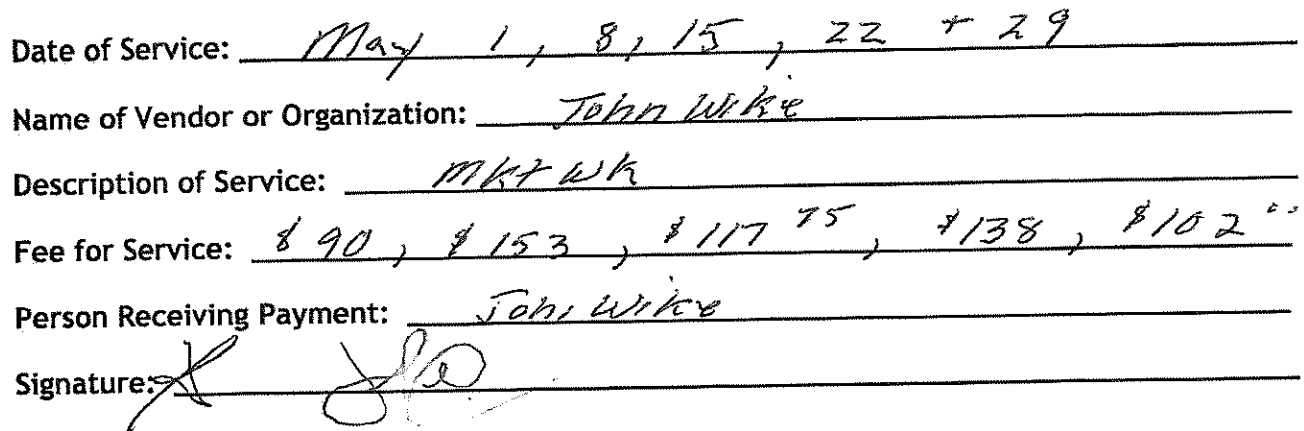 Date of Service: May 1, 8, 15, 22 + 29
Name of Vendor or Organization: John Wike
Description of Service: Mkt Wk
Fee for Service: $90, $153, $117 75, $138, $102 00
Person Receiving Payment: John Wike
Signature: